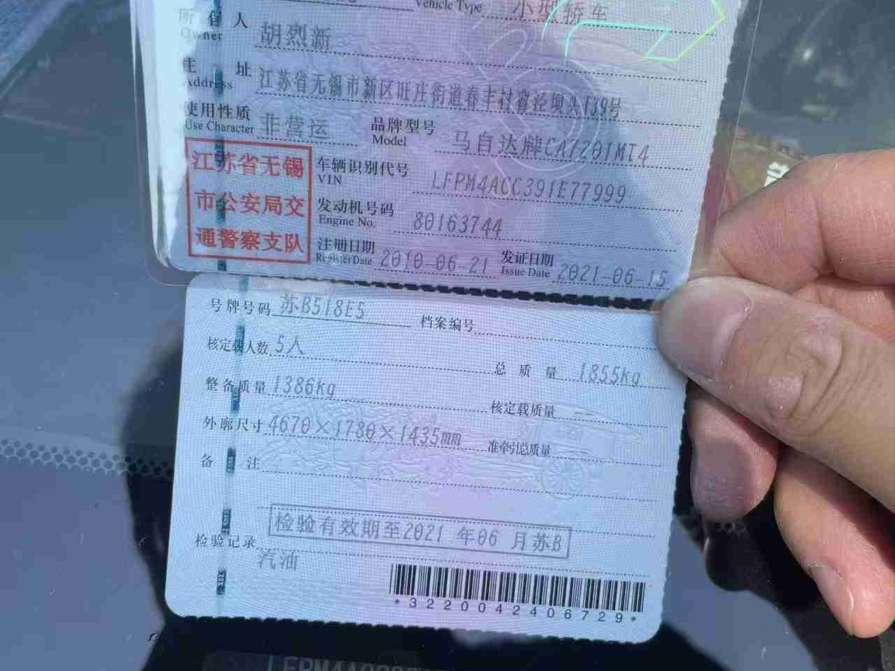 Vehicle Type 小型轿车
所有人 Owner 胡烈新
住址 Address 江苏省无锡市新区旺庄街道春丰社窑泾坝头139号
使用性质 Use Character 非营运 品牌型号 Model 马自达牌CA7201MT4
江苏省无锡
市公安局交
通警察支队
车辆识别代号 VIN LFPM4ACC391E77999
发动机号码 Engine No. 80163744
注册日期 Register Date 2010-06-21 发证日期 Issue Date 2021-06-15
号牌号码 苏B518E5 档案编号
核定载人数 5人 总质量 1855kg
整备质量 1386kg 核定载质量 --
外廓尺寸 4670×1780×1435mm 准牵引总质量 --
备注
检验有效期至2021 年06 月苏B
检验记录
汽油
*3220042406729*